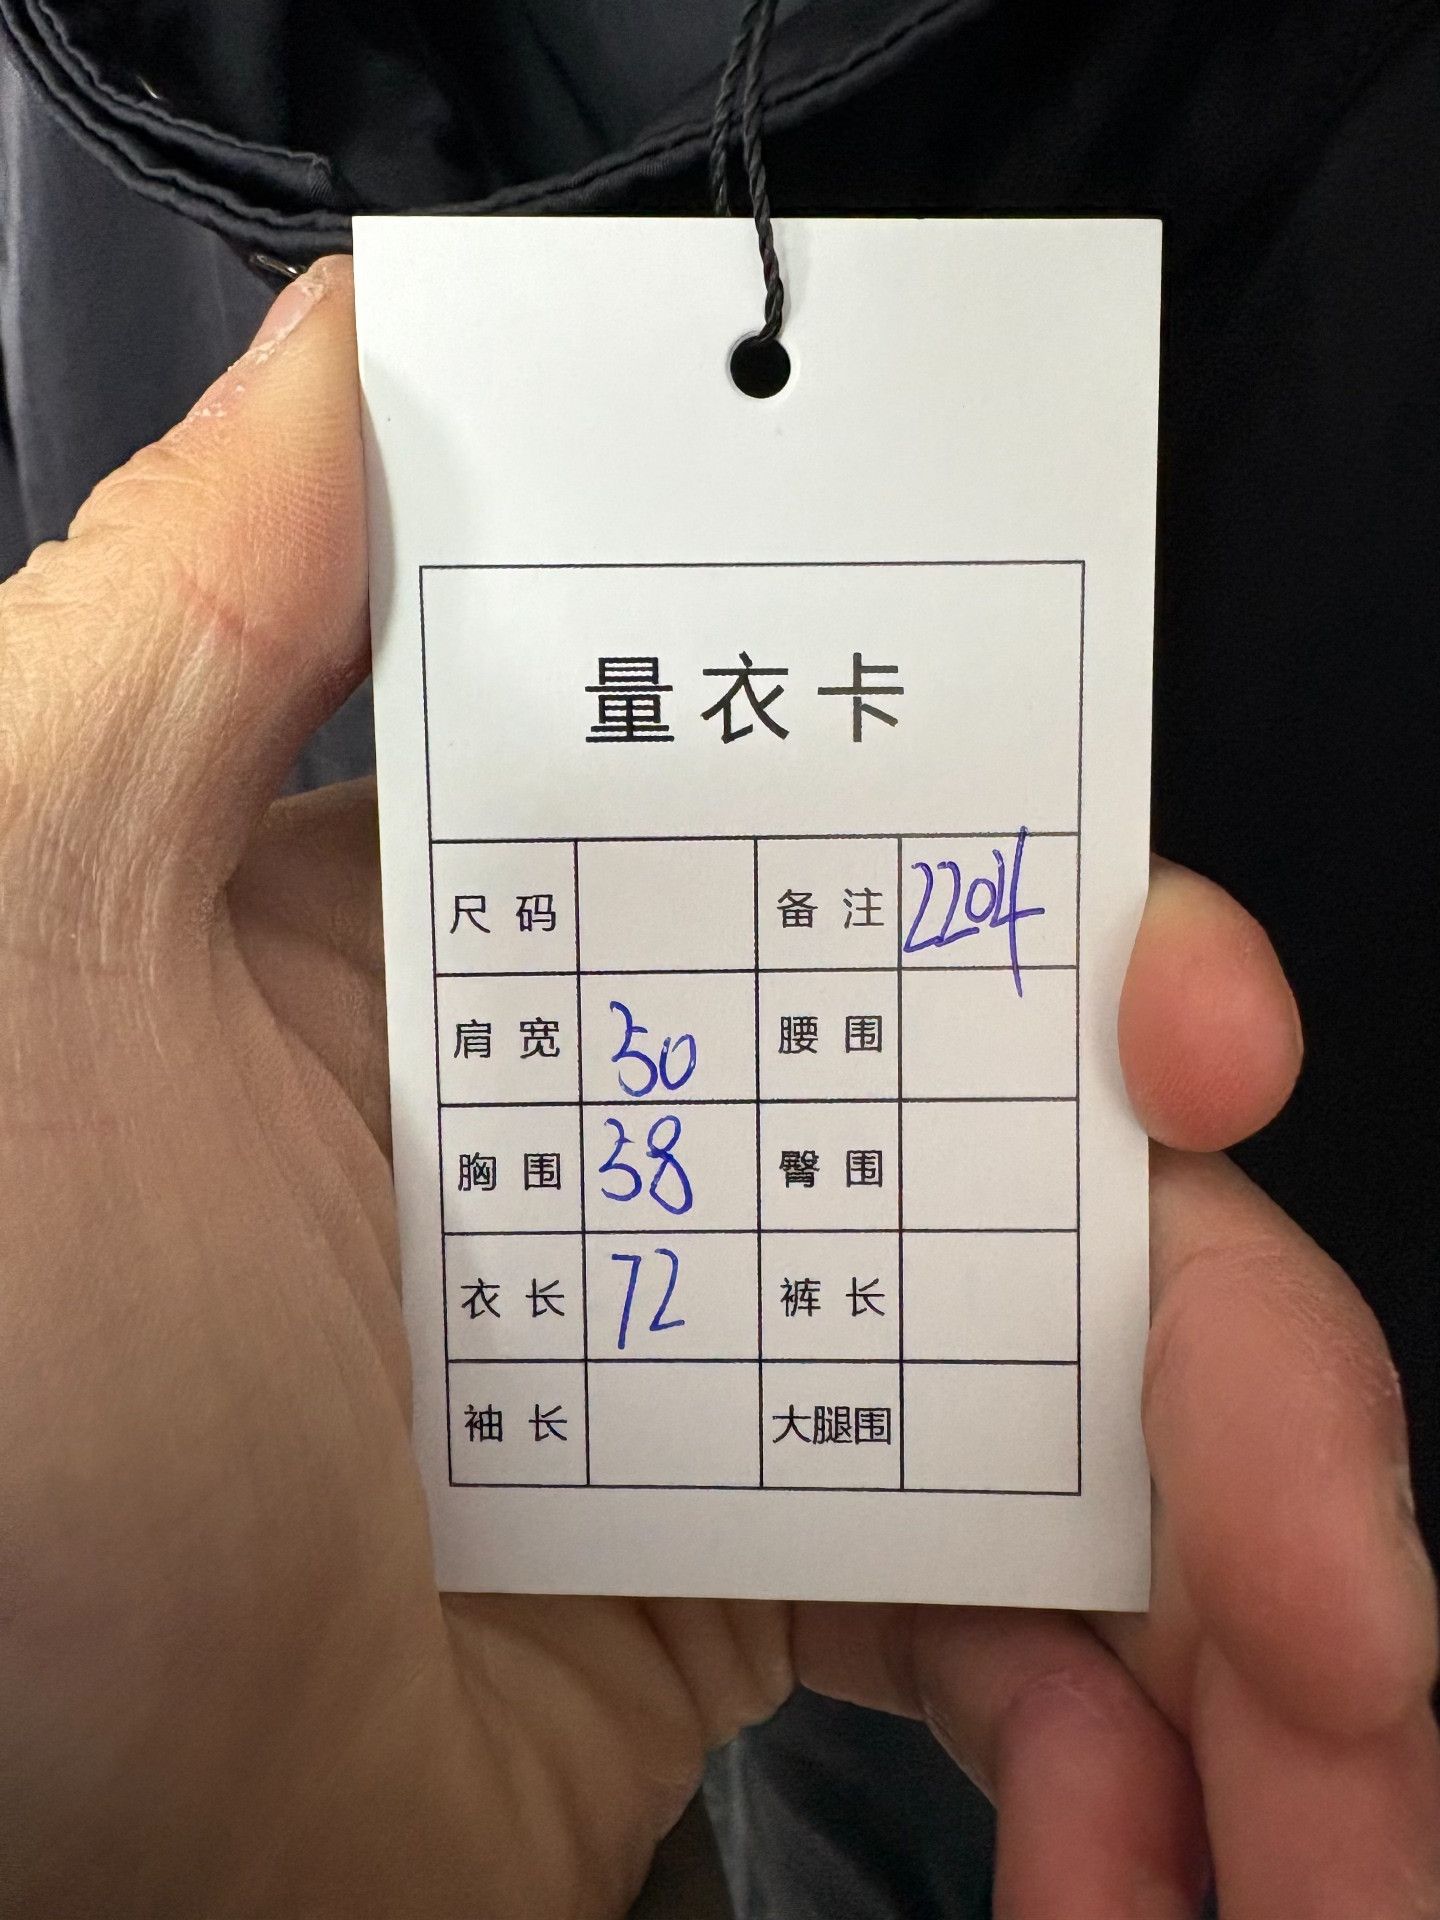 量衣卡
尺码 备注 2204
肩宽 50 腰围
胸围 58 臀围
衣长 72 裤长
袖长 大腿围